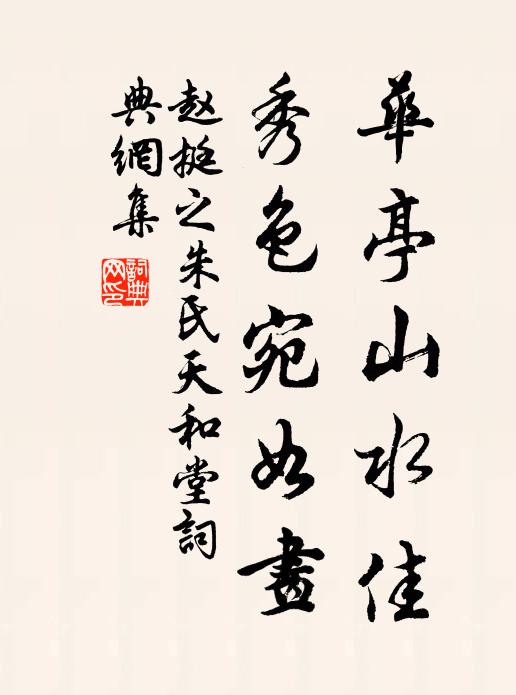 華亭山水佳
秀色宛如畫
赵挺之朱氏天和堂詞
典網集
詞典网印